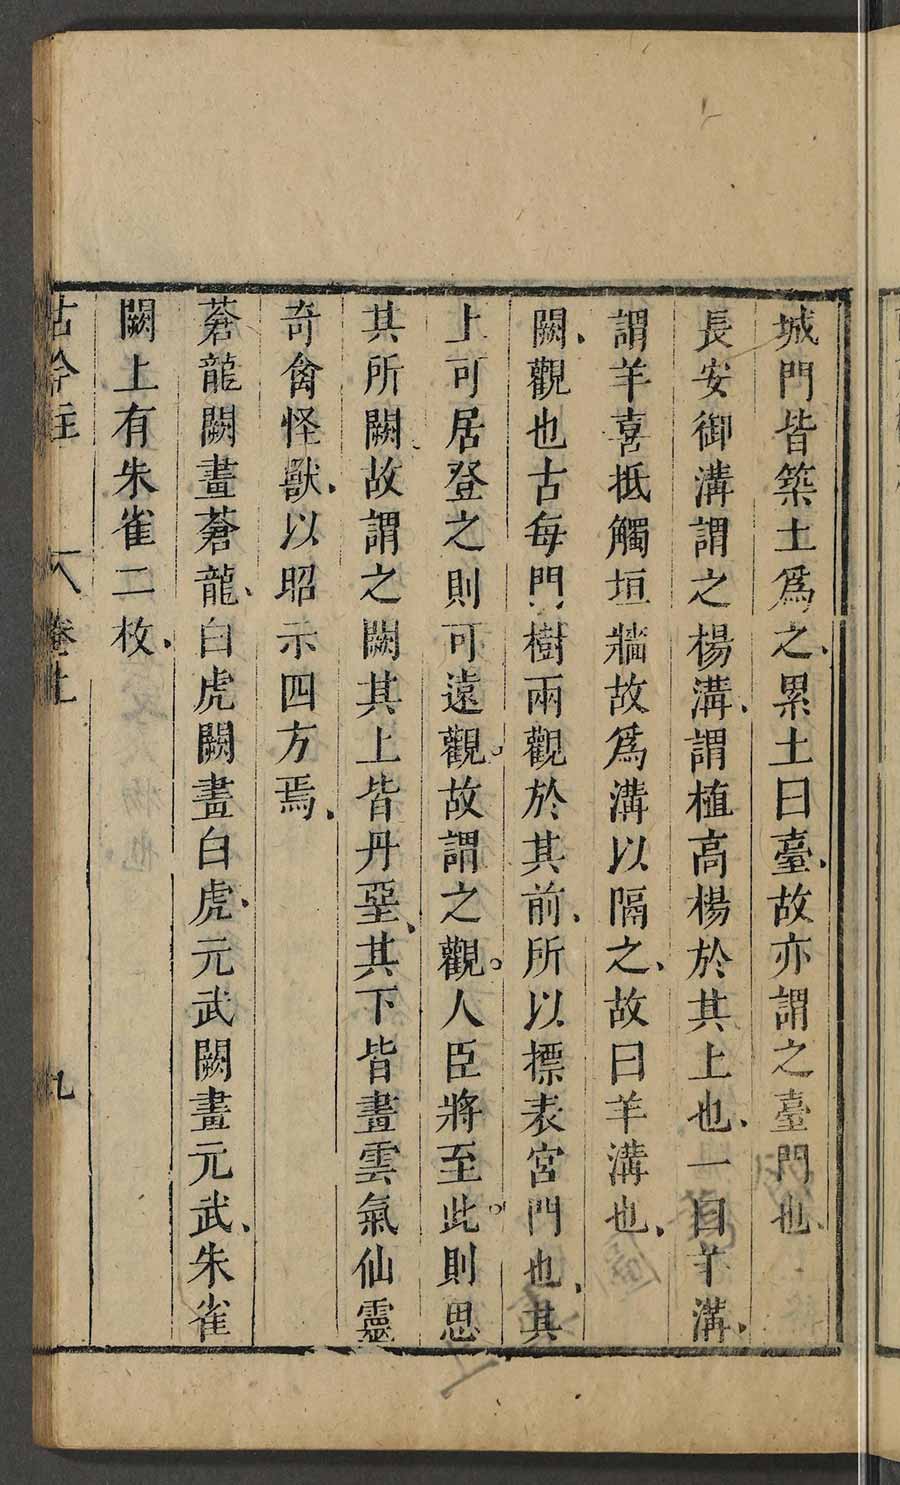 城門皆築土爲之、累土曰臺、故亦謂之臺門也、
長安御溝謂之楊溝、謂植高楊於其上也、一曰羊溝、
謂羊喜抵觸垣牆故爲溝以隔之、故曰羊溝也、
闕、觀也古每門樹兩觀於其前、所以摽表宮門也、其
上可居登之則可遠觀。故謂之觀。人臣將至此。則思
其所闕、故謂之闕其上皆丹堊、其下皆畫雲氣仙靈
奇禽怪獸、以昭示四方焉、
蒼龍闕畫蒼龍、白虎闕畫白虎、元武闕畫元武、朱雀
闕上有朱雀二枚、
古今註 卷上 九